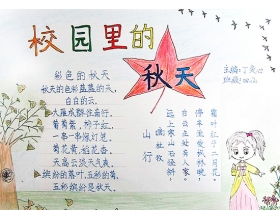 校园里的
秋天
主编:丁
班级:四
彩色的秋天
秋天的色彩是蓝的天,
白白的云,
大雁成群往南行。
葡萄紫,柿子红,
一串一串像灯笼。
菊花黄,稻花香,
天高云淡天气爽,
缤纷的落叶,五彩的菊,
五彩缤纷是秋天。
山行
远上寒山石径斜,
白云生处有人家。
停车坐爱枫林晚,
霜叶红于二月花。